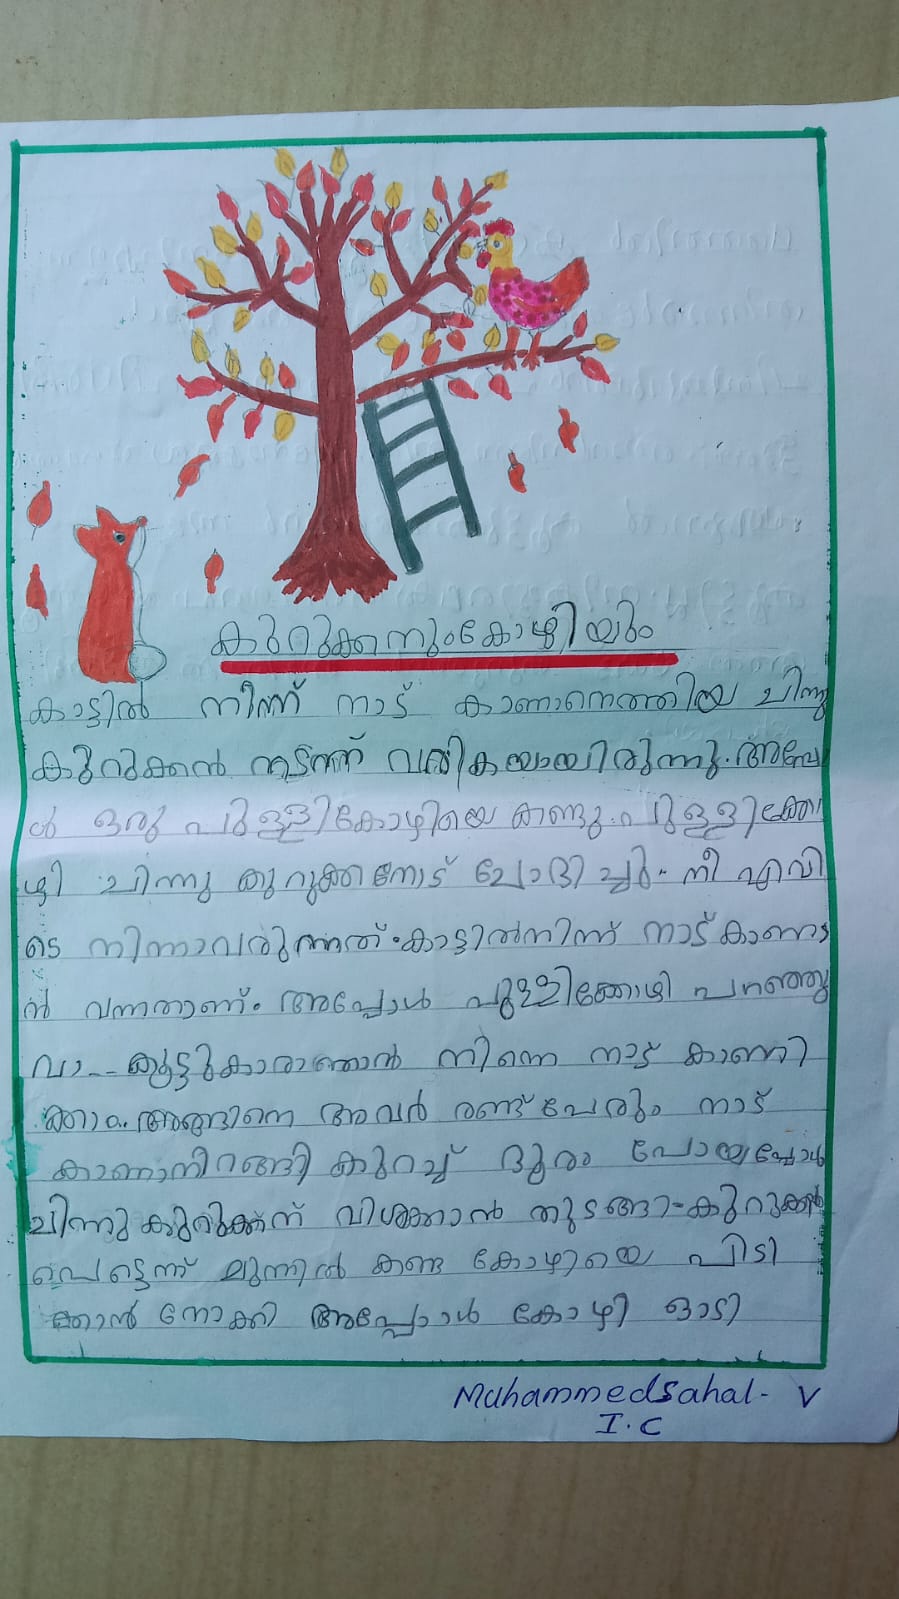 കുറുക്കനുംകോഴിയും
കാട്ടിൽ നിന്ന് നാട് കാണാനെത്തിയ ചിന്നു
കുറുക്കൻ നടന്ന് വരികയായിരുന്നു. അപ്പോ
ൾ ഒരു പുള്ളികോഴിയെ കണ്ടു. പുള്ളിക്കോ
ഴി ചിന്നു കുറുക്കനോട് ചോദിച്ചു. നീ എവി
ടെ നിന്നാവരുന്നത്. കാട്ടിൽനിന്ന് നാട് കാണാ
ൻ വന്നതാണ്. അപ്പോൾ പുള്ളിക്കോഴി പറഞ്ഞു
വാ-- കൂട്ടുകാരാഞാൻ നിന്നെ നാട് കാണി
ക്കാം. അങ്ങിനെ അവർ രണ്ട് പേരും നാട്
കാണാനിറങ്ങി കുറച്ച് ദൂരം പോയപ്പോൾ
ചിന്നു കുറുക്കന് വിശക്കാൻ തുടങ്ങി-കുറുക്കൻ
പെട്ടെന്ന് മുന്നിൽ കണ്ട കോഴിയെ പിടി
ക്കാൻ നോക്കി അപ്പോൾ കോഴി ഓടി
Muhammedsahal- V
I.C